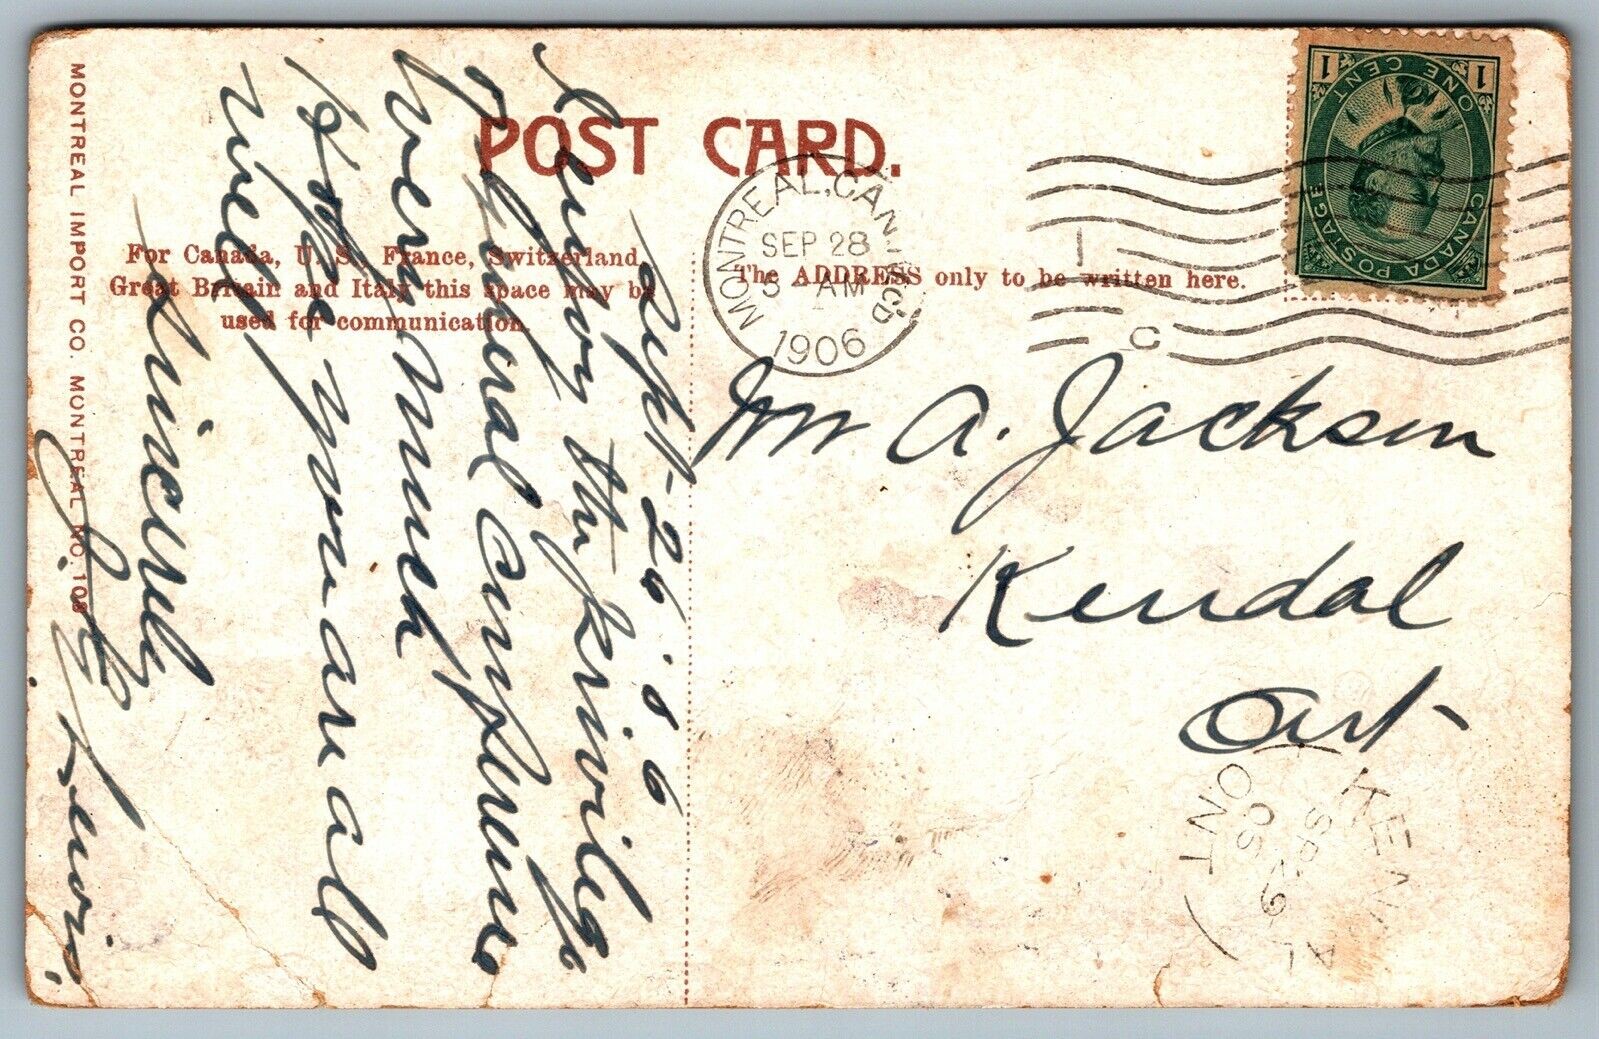 POST CARD.
For Canada, U. S., France, Switzerland,
Great Britain and Italy this space may be
used for communication.
The ADDRESS only to be written here.
MONTREAL IMPORT CO. MONTREAL NO. 108
CANADA POSTAGE
ONE CENT
1 1
MONTREAL, CAN.
SEP 28
3 AM
1906
C
Sept-26 '06
I enjoy the privilege
of General Conference
very much
Hope you are all
well
Sincerely
J. Lewis.
Mr A. Jackson
Kendal
Ont-
KENDAL
SP 29
06
ONT